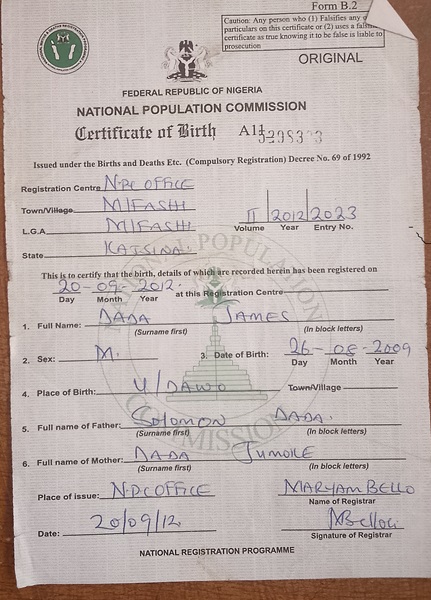 Form B.2
Caution: Any person who (1) Falsifies any
particulars on this certificate or (2) uses a
certificate as true knowing it to be false is liable to
prosecution
ORIGINAL
FEDERAL REPUBLIC OF NIGERIA
NATIONAL POPULATION COMMISSION
Certificate of Birth
Issued under the Births and Deaths Etc. (Compulsory Registration) Decree No. 69 of 1992
Registration Centre N.P.C OFFICE
Town/Village M/FASHI
L.G.A M/FASHI
II 2012 2023
Volume Year Entry No.
State KATSINA
This is to certify that the birth, details of which are recorded herein has been registered on
20-09-2012. at this Registration Centre
Day Month Year
1. Full Name: DADA JAMES
(Surname first) (In block letters)
2. Sex: M. 3. Date of Birth: 26-08-2009
Day Month Year
4. Place of Birth: U/DAWO Town/Village
5. Full name of Father: SOLOMON DADA.
(Surname first) (In block letters)
6. Full name of Mother: DADA JUMOKE
(Surname first) (In block letters)
Place of issue: N.P.C OFFICE MARYAM BELLO
Name of Registrar
Date: 20/09/12. MBello
Signature of Registrar
NATIONAL REGISTRATION PROGRAMME
NATIONAL POPULATION COMMISSION